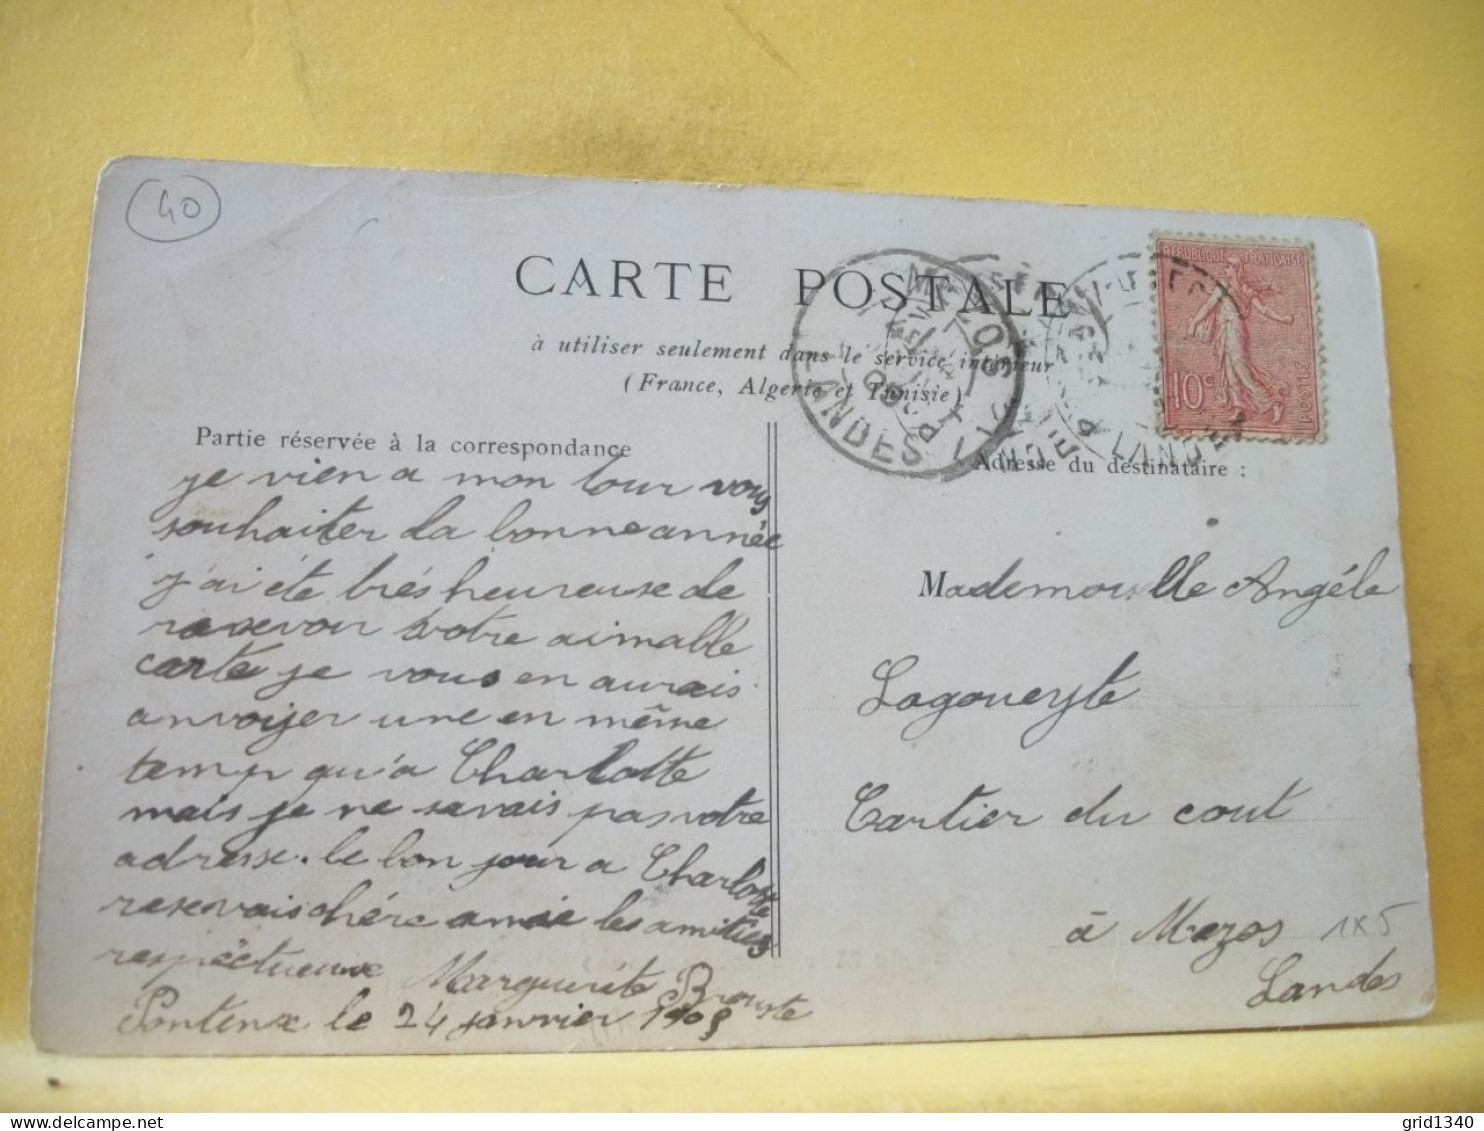 40
CARTE POSTALE
à utiliser seulement dans le service intérieur
(France, Algerie et Tunisie)
REPUBLIQUE FRANÇAISE
10c
POSTES
MEZOS
LANDES
Partie réservée à la correspondance
Adresse du destinataire :
je vien a mon tour vous
souhaiter la bonne année
j'ai éte trés heureuse de
resevoir votre aimable
carte je vous en aurais
anvoyer une en même
temp qu'a Charlotte
mais je ne savais pas votre
adresse. le bon jour a Charlotte
resevais chére amie les amitiés
respéctueuse Marguerite Brouste
Pontenx le 24 janvier 1905
Mademoiselle Angéle
Lagoueyte
Cartier du cout
à Mezos
Landes
1x5
grid1340